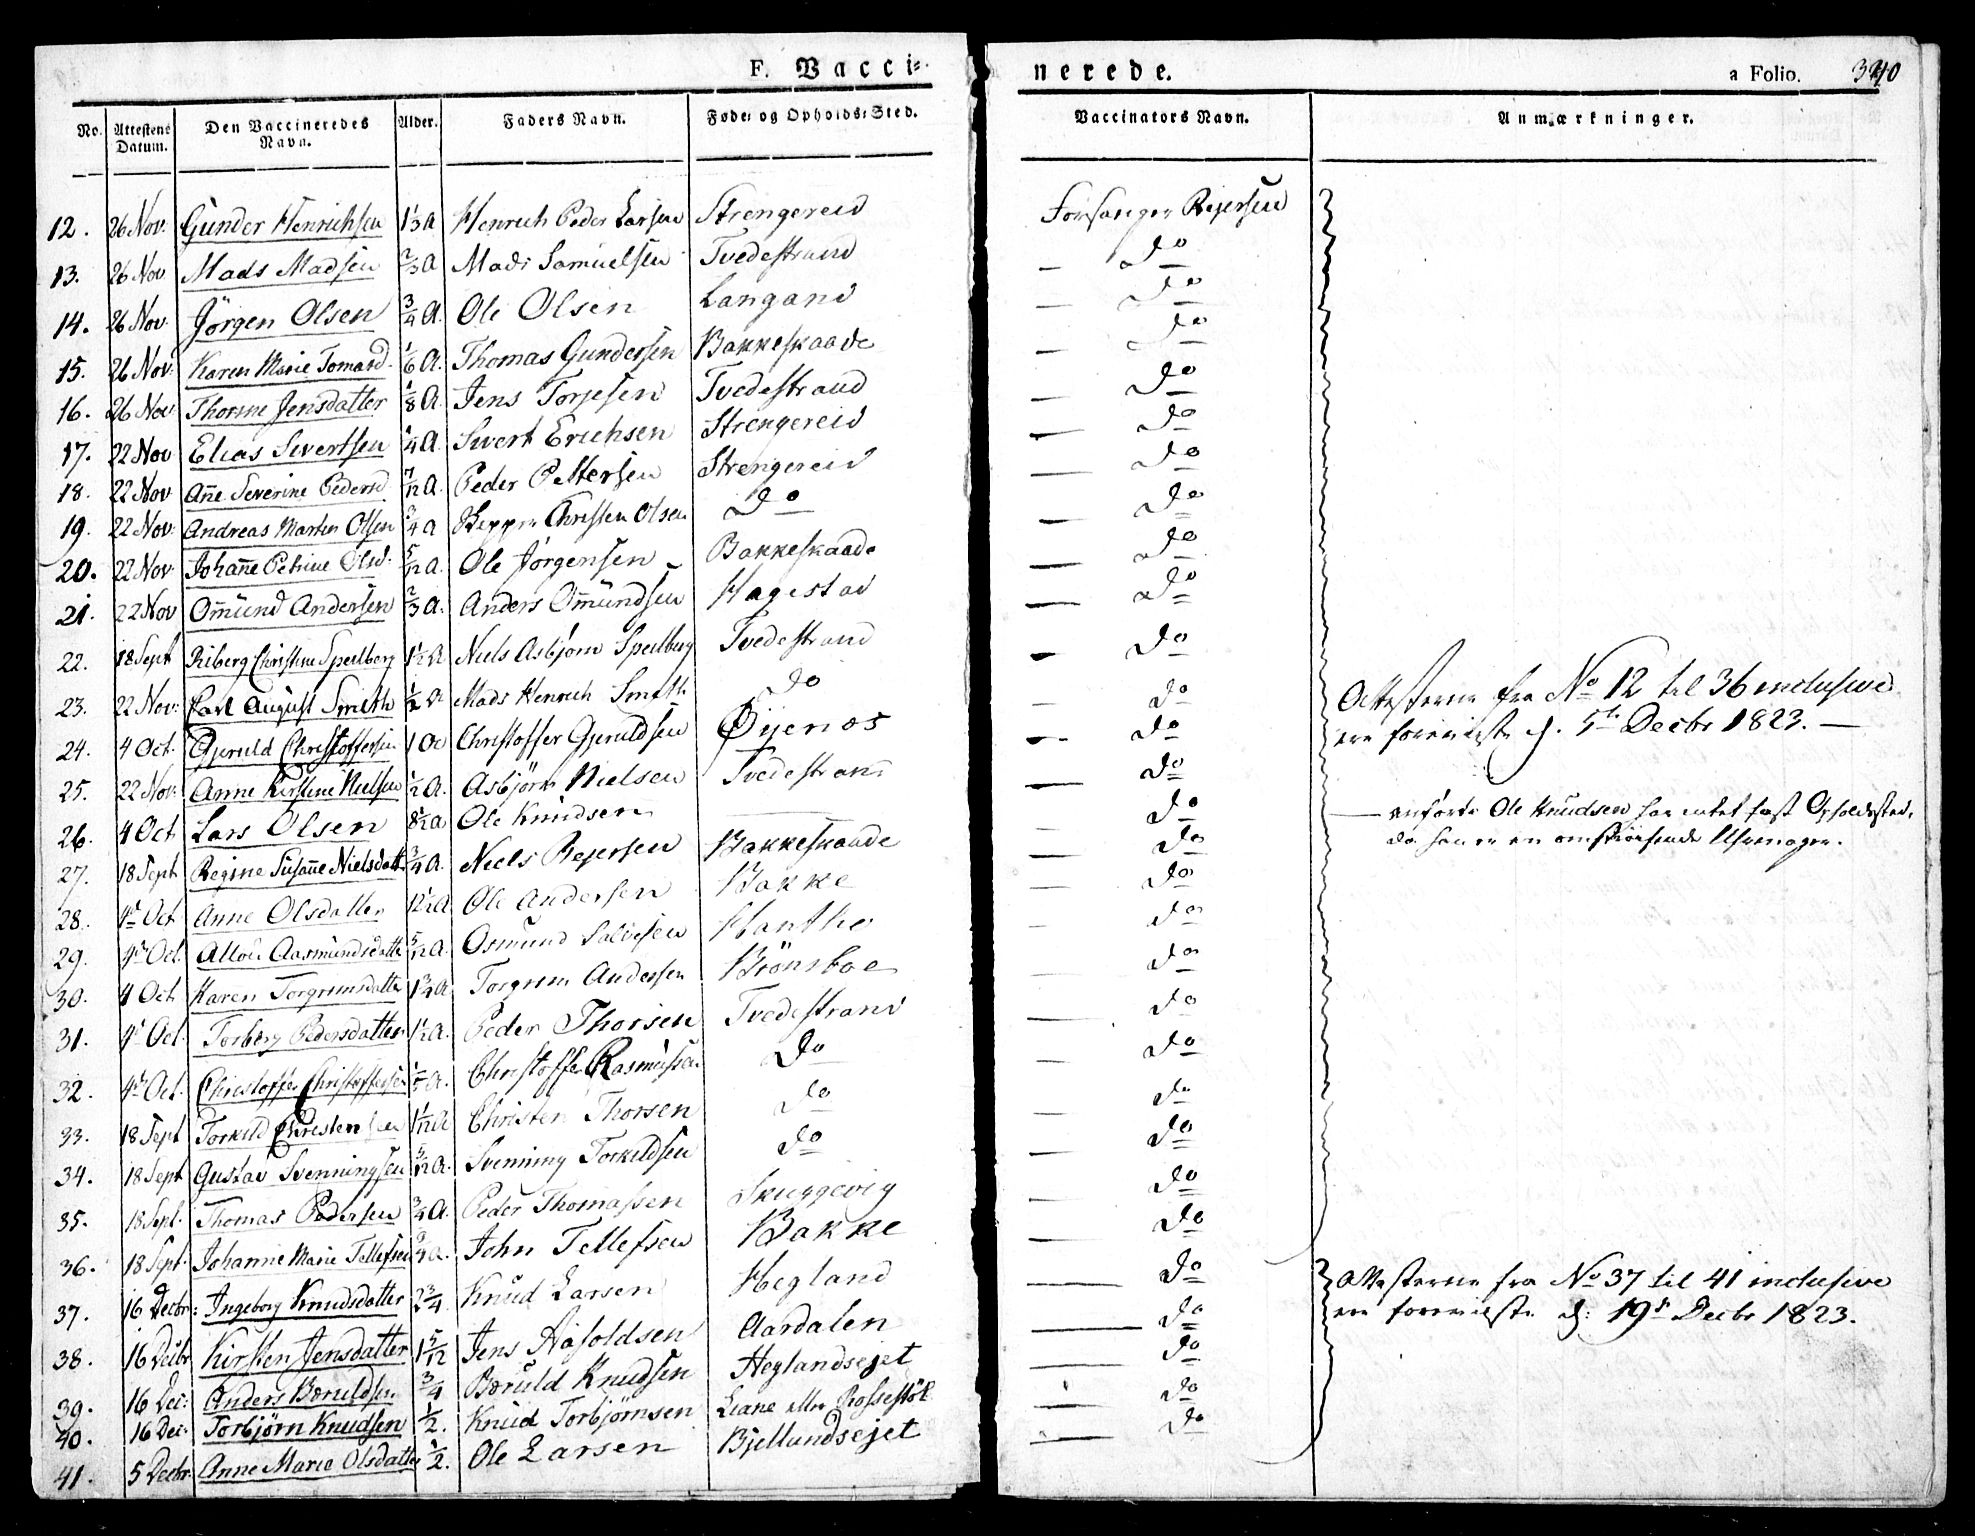 F. Vacci=
nerede.
a Folio. 340
No. Attestens Datum. Den Vaccineredes Navn. Alder. Faders Navn. Føde- og Opholds-Sted. Vaccinators Navn. Anmærkninger.
12. 26 Nov. Gunder Henrichsen 1⅓ a Henrich Peder Larsen Strengereid Forsanger Reiersen
13. 26 Nov Mads Madsen ⅔ a Mads Samuelsen Tvedestrand — do
14. 26 Nov. Jörgen Olsen ¾ A. Ole Olsen Langand — do
15. 26 Nov. Karen Marie Tomasd. 1/6 A. Thomas Gundersen Bakkeskaade — do
16. 26 Nov. Thorine Jensdatter 1/8 A. Jens Torjesen Tvedestrand — do
17. 22 Nov Elias Sivertsen ¼ A. Sivert Erichsen Strengereid — do
18. 22 Nov Añe Severine Pedersd 7/12 A. Peder Pettersen Strengereid — do
19. 22 Nov. Andreas Martin Olsen ¾ a Skipper Christen Olsen Do — do
20. 22 Nov. Johañe Petrine Olsd. 5/12 a. Ole Jörgensen Bakkeskaade — do
21. 22 Nov Om̃und Andersen ⅔ A. Anders Om̃undsen Hagestad — do
22. 18 Sept Riberg Christine Speilberg 1½ A Niels Asbjørn Speilberg Tvedestrand — do
23. 22 Nov. Carl August Smith ½ a Mads Henrich Smith Do — do
24. 4 Oct. Gjeruld Christoffersen 1 Christoffer Gjeruldsen Øijenæs — do
25. 22 Nov. Anne Kirstine Nielsen ½ A. Asbjörn Nielsen Tvedestrand — do
26. 4 Oct Lars Olsen 8½ a Ole Knudsen — — do
27. 18 Sept Regine Susañe Nielsdatt. ¾ A. Niels Rejersen Bakkeskaade — do
28. 4 Oct Anne Olsdatter 12½ A Ole Andersen Bakke — do
29. 4 Oct. Aasmundsdatter 5/12 A. Osmund Salvesen Hantho — do
30. 4 Oct. Karen Torgrimsdatter 1¾ A Torgrim Andersen Brönsboe — do
31. 4 Oct. Torberg Pedersdatter 1½ A. Peder Thorsen Tvedestrand — do
32. 4 Oct. Christoffer Christoffersen A. Christoffer Rasmussen Do — do
33. 18 Sept Torkild Christensen 1 1/12 A Christen Thorsen Do — do
34. 18 Sept Gustav Svenningsen 5/12 A. Svenning Torkildsen Do — do
35. 18 Sept. Thomas Pedersen ¾ A. Peder Thomassen Skuggevig — do
36. 18 Sept. Johanne Marie Tellefsen ¾ a. John Tellefsen Bakke — do
37. 16 Decbr: Ingeborg Knudsdatter 2¾ Knud Larsen Hegland — do
38. 16 Decbr Kirsten Jensdatter 1 5/12 Jens Aasoldsen Aardalen — do
39. 16 Dec: Anders Bæruldsen ¾ Bæruld Knudsen Heglandsejet — do
40. 16 Dec: Torbjørn Knudsen ½. Knud Torbjørnsen Liane eller Rossestöl — do
41. 5 Decbr. Anne Maria Olsdatter ½. Ole Larsen Bjellandsejet — do
Attesterne fra No 12 til 36 inclusive
ere foreviiste d. 5te Decbr 1823. —
— anførte Ole Knudsen har intet fast Opholdssted,
da han er en omstreifende Uhrmager.
Attesterne fra No 37 til 41 inclusive
ere foreviiste d: 19de Decbr 1823.